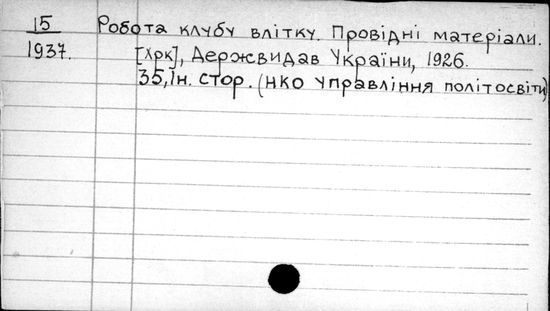 15 Робота клубу влітку. Провідні матеріали.
1937. [Хрк], Держвидав України, 1926.
35, Ін. стор. (НКО Управління політосвіти)